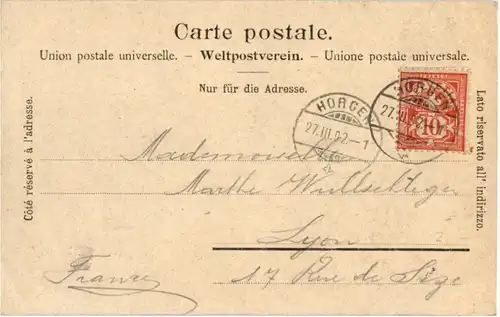 Carte postale.
Union postale universelle. – Weltpostverein. – Unione postale universale.
Nur für die Adresse.
Côté réservé à l'adresse.
Lato riservato all' indirizzo.
HORGEN
27.III.02.–1
HORGEN
27.III.02.
10
Mademoiselle
Marthe Wullschleger
Lyon
France
17 Rue de Sèze